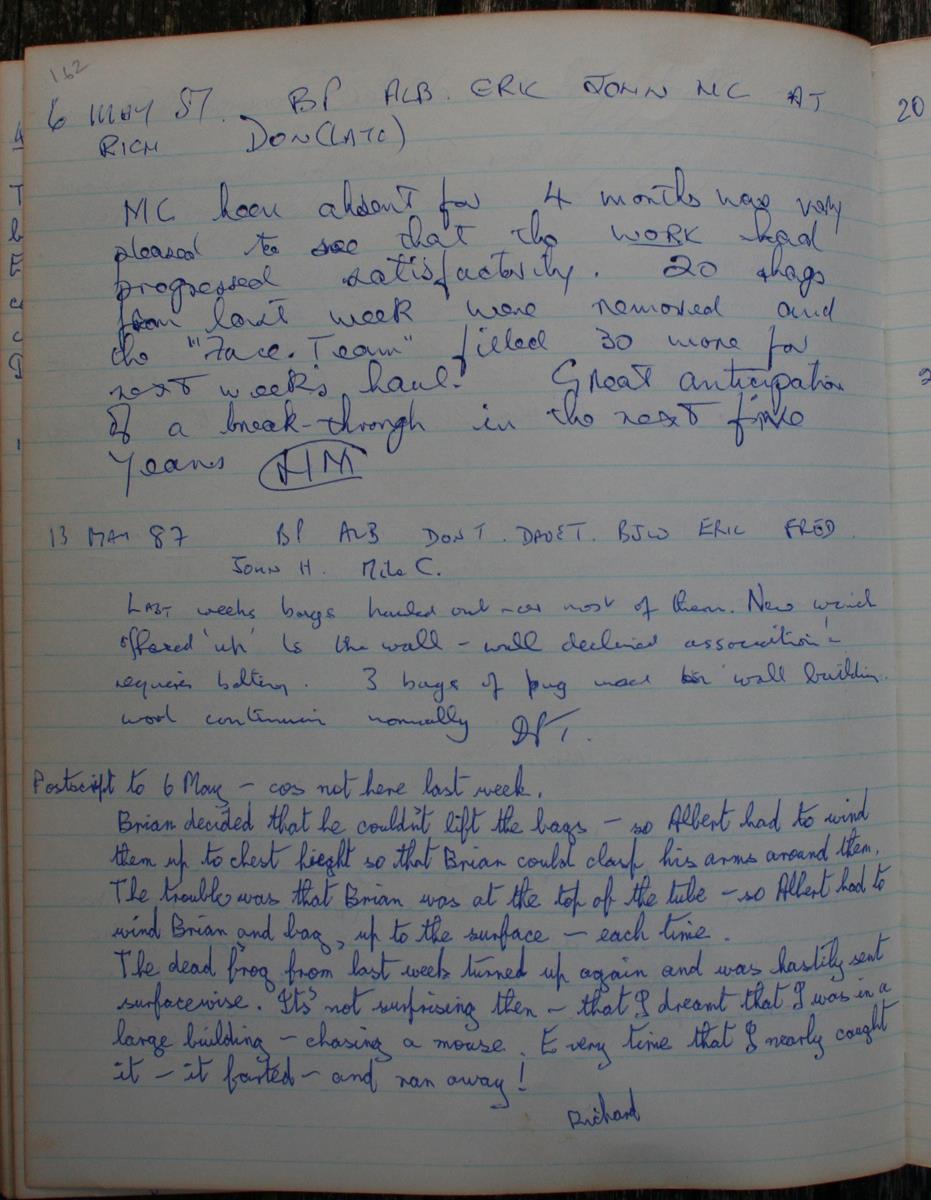 162
6 MAY 87. BP ALB. ERIC JOHN MC AT
RICH DON (LATE)
MC been absent for 4 months was very
pleased to see that the WORK had
progressed satisfactorily. 20 bags
from last week were removed and
the "Face. Team" filled 30 more for
next week's haul. Great anticipation
of a break-through in the next five
years
13 MAY 87 BP ALB DON T. DAVE T. BJW ERIC FRED.
JOHN H. Mike C.
LAST weeks bags hauled out - most of them. New winch
offered 'up' to the wall - wall declined association -
requires bolting. 3 bags of pug used for wall building.
work continuing normally DPT.
Postscript to 6 May - cos not here last week.
Brian decided that he couldn't lift the bags - so Albert had to wind
them up to chest height so that Brian could clasp his arms around them.
The trouble was that Brian was at the top of the tube - so Albert had to
wind Brian and bag, up to the surface - each time.
The dead frog from last week turned up again and was hastily sent
surfacewise. It's not surprising then - that I dreamt that I was in a
large building - chasing a mouse. Every time that I nearly caught
it - it farted - and ran away!
Richard
20